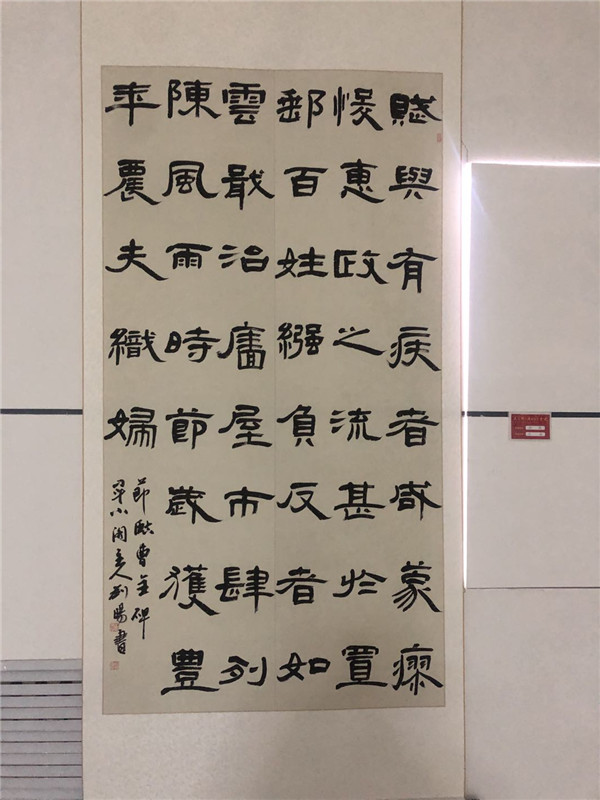 賦與有疾者咸蒙瘳
悛惠政之流甚於置
郵百姓繦負反者如
雲戢治廧屋市肆列
陳風雨時節歲獲豐
年農夫織婦
節臨曹全碑